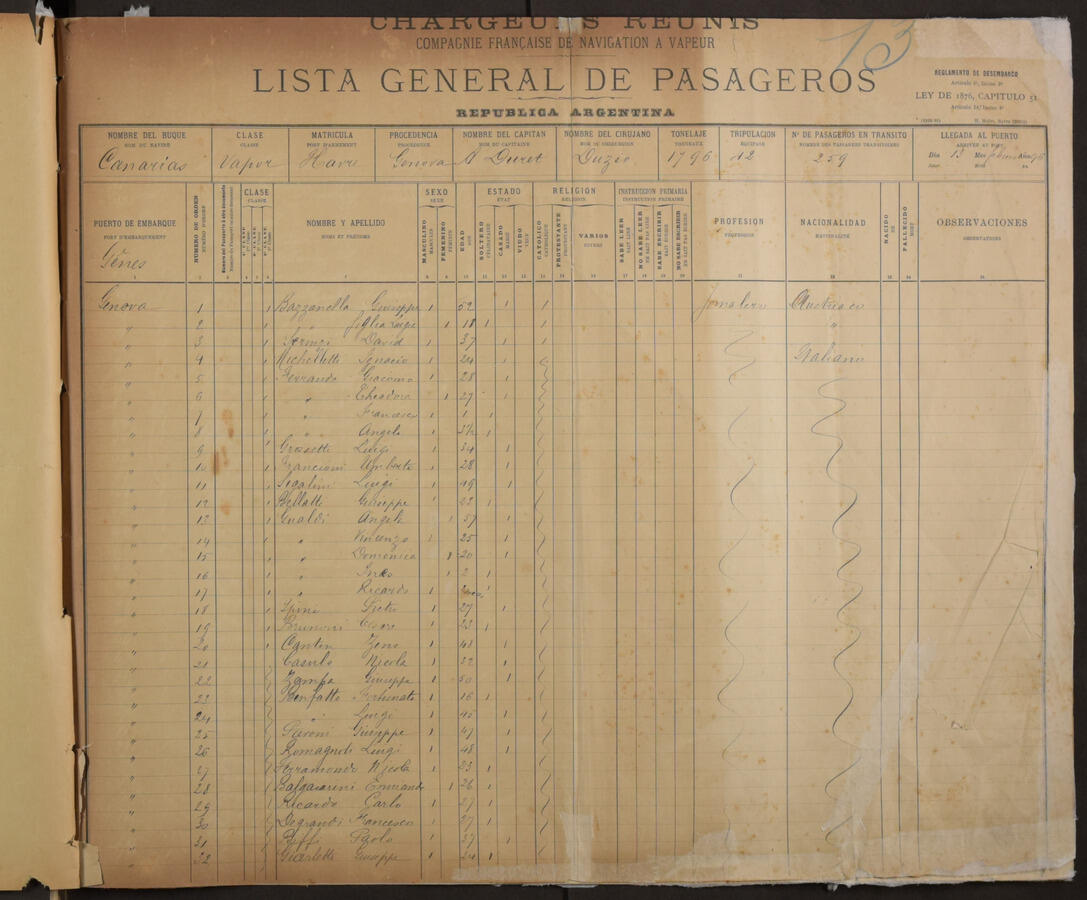 CHARGEURS REUNIS
COMPAGNIE FRANÇAISE DE NAVIGATION A VAPEUR
13
LISTA GENERAL DE PASAGEROS
REPUBLICA ARGENTINA
REGLAMENTO DE DESEMBARCO
LEY DE 1876, CAPITULO
NOMBRE DEL BUQUE CLASE MATRICULA PROCEDENCIA NOMBRE DEL CAPITAN NOMBRE DEL CIRUJANO TONELAJE TRIPULACION Nº DE PASAGEROS EN TRANSITO LLEGADA AL PUERTO
NOM DU NAVIRE CLASSE PORT D'ARMEMENT PROCEDENCE NOM DU CAPITAINE NOM DU CHIRURGIEN TONNEAUX EQUIPAGE NOMBRE DES PASSAGERS TRANSITAIRES ARRIVEE AU PORT
Canarias Vapor Havre Genova A Duret 1796 42 259 Dia 13 Mes
PUERTO DE EMBARQUE NUMERO DE ORDEN CLASE NOMBRE Y APELLIDO SEXO EDAD ESTADO RELIGION INSTRUCCION PRIMARIA PROFESION NACIONALIDAD NACIDO FALLECIDO OBSERVACIONES
PORT D'EMBARQUEMENT CLASSE NOMS ET PRÉNOMS SEXE ETAT RELIGION INSTRUCTION PRIMAIRE PROFESSION NATIONALITÉ OBSERVATIONS
MASCULINO FEMENINO SOLTERO CASADO VIUDO CATOLICO PROTESTANTE VARIOS SABE LEER NO SABE LEER SABE ESCRIBIR NO SABE ESCRIBIR
Gênes
Genova 1 1 Bazzanella Giuseppe 1 52 1 1 Jornalero Austriaco
" 2 1 " 1 18 1 1 "
" 3 1 David 1 37 1 1
" 4 1 Michelotti Ignacio 1 24 1 Italiano
" 5 1 Ferrando Giacomo 1 28 1
" 6 1 " Theodora 1 27 1
" 7 1 " Francesco 1 1 1
" 8 1 " Angelo 1 1
" 9 1 Grossetti Luigi 1 34 1
" 10 1 Francioni Umberto 1 28 1
" 11 1 Segalini Luigi 1 49 1
" 12 1 Giuseppe 1 22 1
" 13 1 Gualdi Angela 1 57 1
" 14 1 " Vincenzo 1 25 1
" 15 1 " Domenica 1 20 1
" 16 1 " 1 2 1
" 17 1 " Ricardo 1 1
" 18 1 Spini 1 27 1
" 19 1 Brunoni Cesare 1 23 1
" 20 1 Cantin Zeno 1 41 1
" 21 1 Nicola 1 32 1
" 22 Zampa Giuseppe 1 50 1
" 23 Benfatto Fortunato 1 16 1
" 24 " Luigi 1 45 1
" 25 Pieroni Giuseppe 1 47 1
" 26 Romagnoli Luigi 1 48 1
" 27 Nicola 1 23 1
" 28 1 26 1
" 29 Ricardo Carlo 1 27 1
" 30 Degrandi Francesco 1 27 1
" 31 Paolo 1 37 1
" 32 Giuseppe 1 24 1